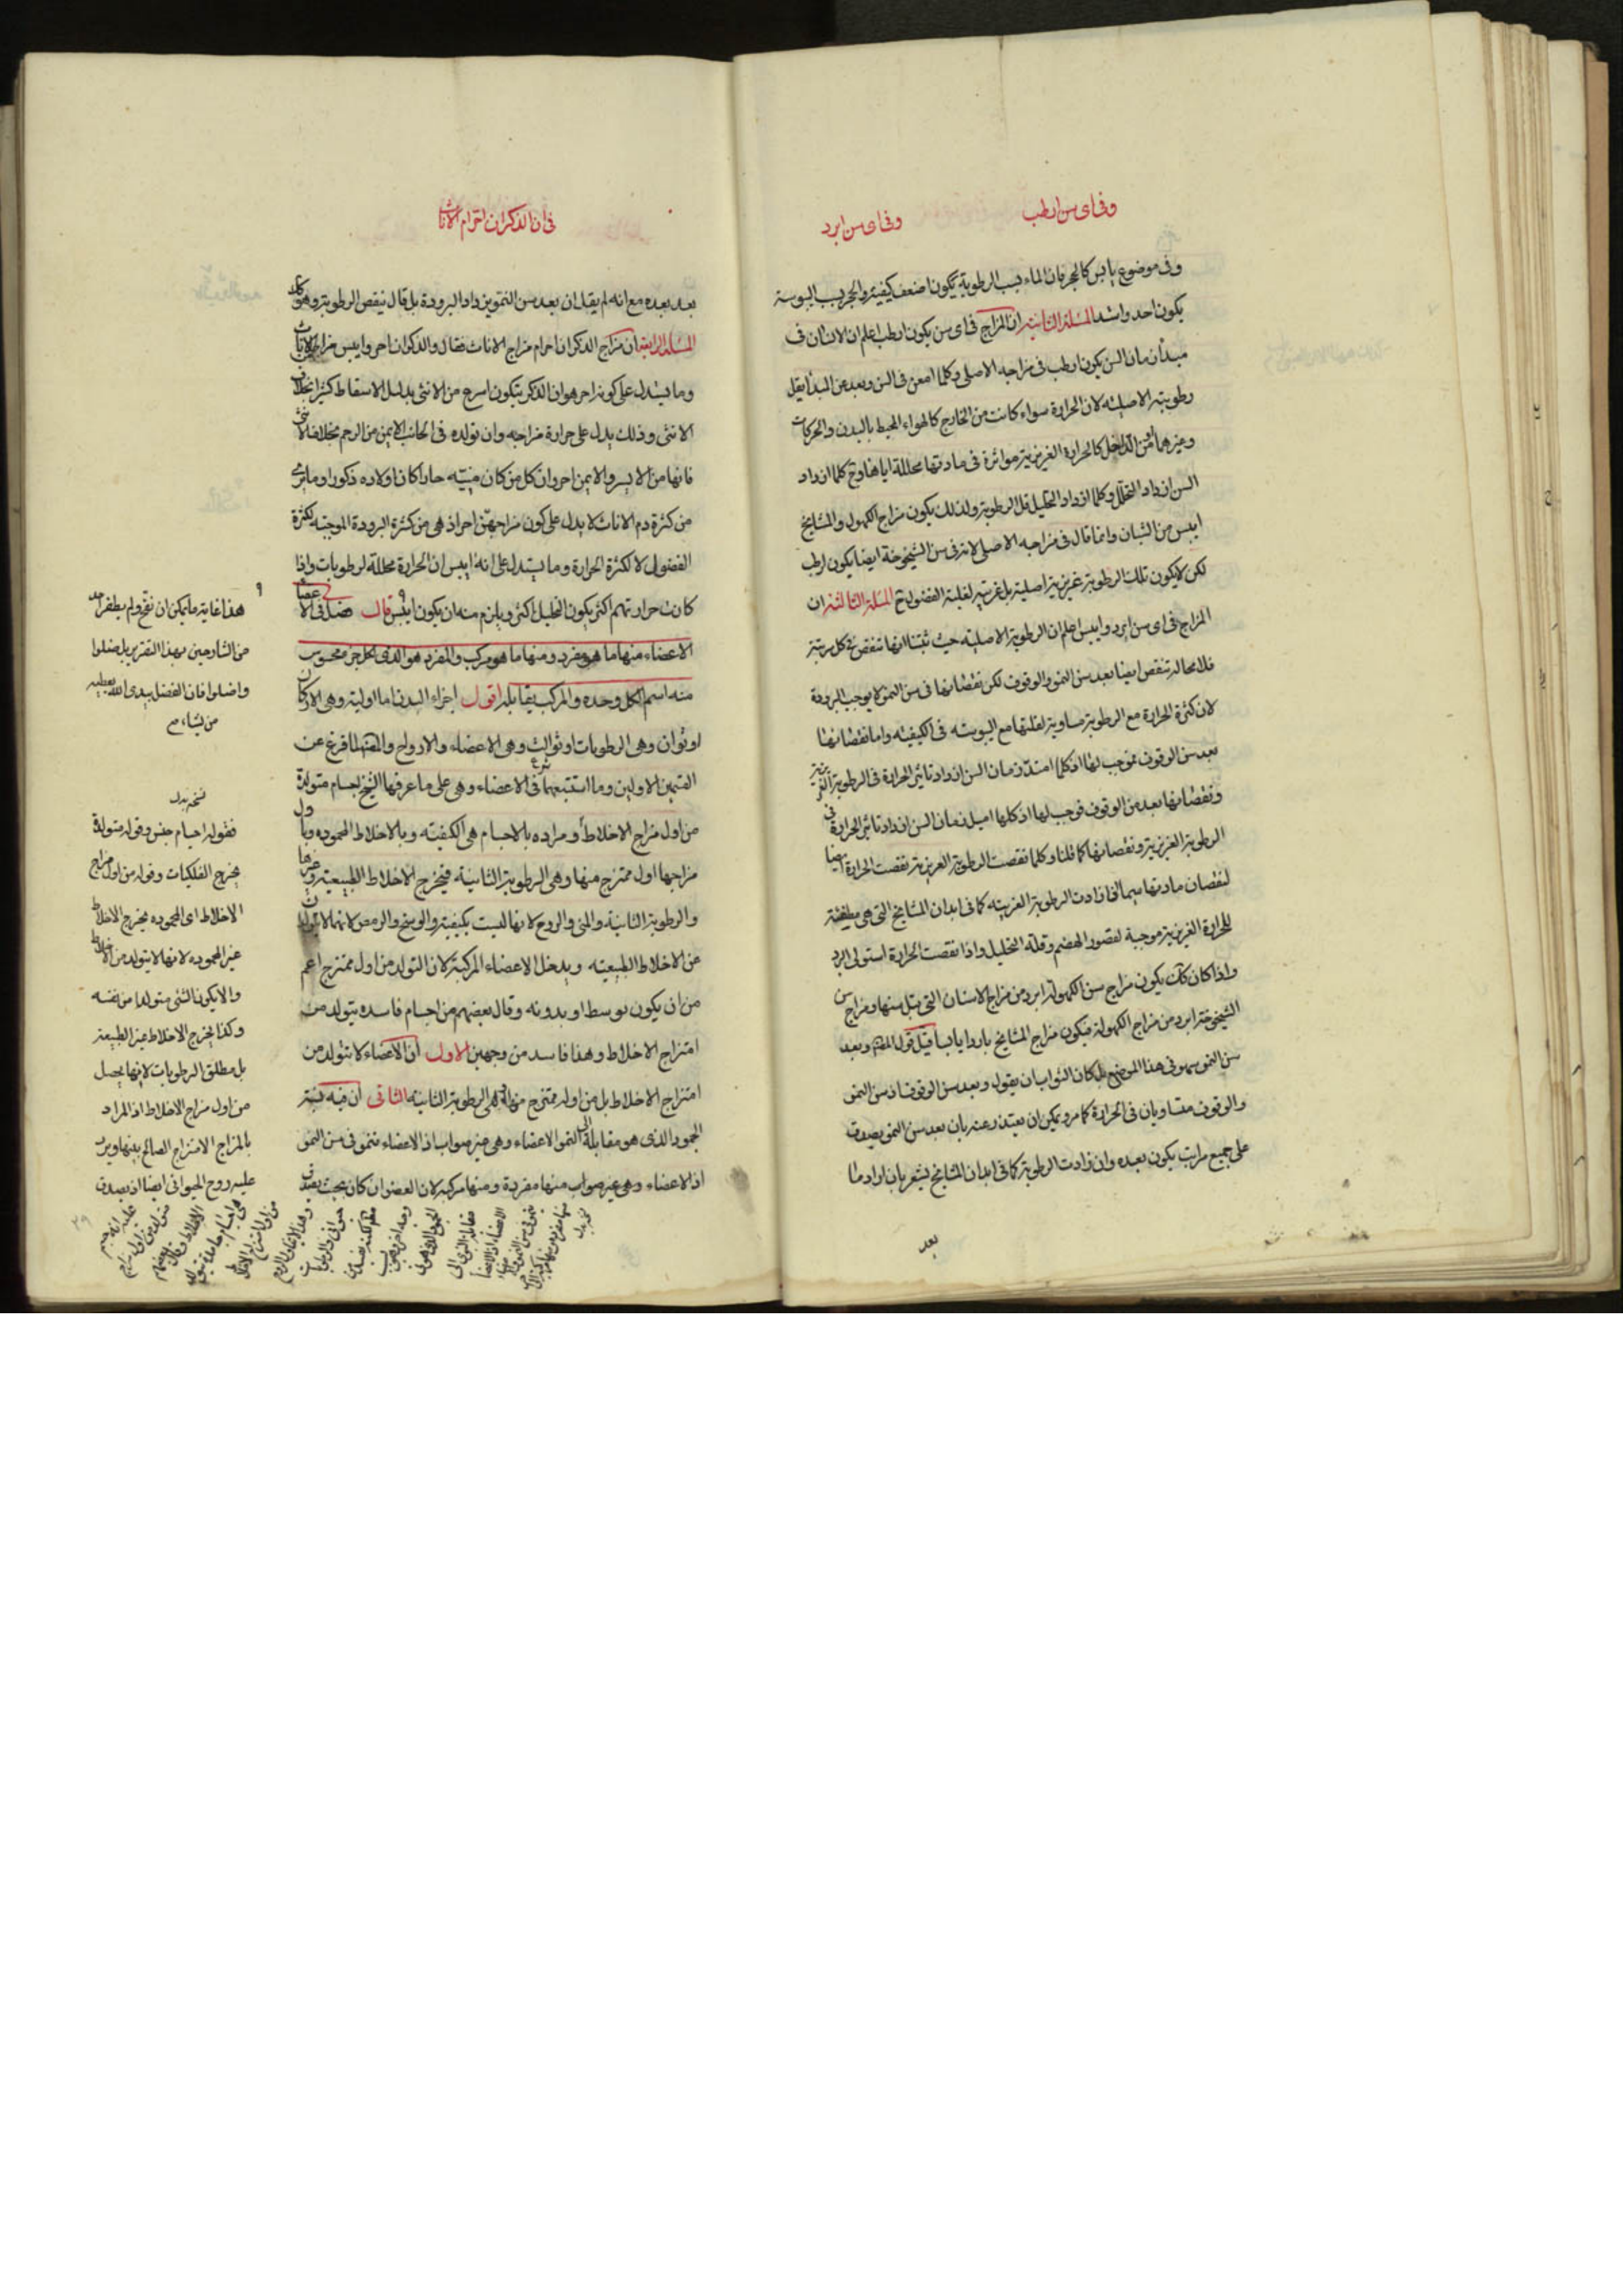 وفی ای سن ارطب
وفی ای سن ابرد
وفی موضوع یابس کالحجر فان الماء بسبب الرطوبة یکون اضعف کیفیة والحجر بسبب الیبوسة
یکون احد واشد المسئلة الثانیة ان المزاج فی ای سن یکون ارطب اعلم ان الانسان فی
مبدأ زمان السن یکون ارطب فی مزاجه الاصلی وکلما امعن فی السن وبعد عن المبدأ یقل
رطوبته الاصلیة لان الحرارة سواء کانت من الخارج کالهواء المحیط بالبدن والحرکات
وغیرهما او من الداخل کالحرارة الغریزیة مؤثرة فی مادتها محللة ایاها وح کلما ازداد
السن ازداد التحلل وکلما ازداد التحلیل قل الرطوبة ولذلک یکون مزاج الکهول والمشایخ
ایبس من الشبان وانما قال فی مزاجه الاصلی لانه فی سن الشیخوخة ایضا یکون ارطب
لکن لا یکون تلک الرطوبة غریزیة اصلیة بل غریبة لغلبة الفضول ح المسئلة الثالثة ان
المزاج فی ای سن ابرد وایبس اعلم ان الرطوبة الاصلیة حیث ثبتنا انها تنقص فی کل مرتبة
فلا محالة تنقص ایضا بعد سن النمو والوقوف لکن نقصانها فی سن النمو لا یوجب البرودة
لان کثرة الحرارة مع الرطوبة مساویة لقلتها مع الیبوسة فی الکیفیة واما نقصانها
بعد سن الوقوف فموجب لها اذ کلما امتد زمان السن ازداد تاثیر الحرارة فی الرطوبة الغریزیة
ونقصانها بعد سن الوقوف فوجب لها اذ کلما امتد زمان السن ازداد تاثیر الحرارة فی
الرطوبة الغریزیة ونقصانها کما قلنا وکلما نقصت الرطوبة الغریزیة نقصت الحرارة ایضا
لنقصان مادتها سیما اذا زادت الرطوبة الغریبة کما فی ابدان المشایخ التی هی مطفئة
للحرارة الغریزیة موجبة لقصور الهضم وقلة التحلیل واذا نقصت الحرارة استولی البرد
واذا کان کک یکون مزاج سن الکهولة ابرد من مزاج الاسنان التی قبل سنها ومزاج سن
الشیخوخة ابرد من مزاج الکهولة فیکون مزاج المشایخ باردا یابسا قیل قول المص وبعد
سن النمو سهو فی هذا الموضع بل کان الصواب ان یقول وبعد سن الوقوف اذ سن النمو
والوقوف متساویان فی الحرارة کما مر ویمکن ان یعتذر عنه بان بعد سن النمو یصدق
علی جمیع مراتب یکون بعده وان زادت الرطوبة کما فی ابدان المشایخ یشعر بان اراد ما
بعد
فی ان الذکران احر ام الاناث
بعد بعده مع انه لم یقل ان بعد سن النمو یزداد البرودة بل قال ینقص الرطوبة وهو
المسئلة الرابعة ان مزاج الذکران احر ام مزاج الاناث فقال والذکران احر وایبس مزاجا من الاناث
ومما یستدل علی کونه احر هو ان الذکر یتکون اسرع من الانثی بدلیل الاسقاط کثیرا بخلاف
الانثی وذلک یدل علی حرارة مزاجه وان تولده فی الجانب الایمن من الرحم بخلاف الانثی
فانها من الایسر والایمن احر وان کل من کان منیه حارا کان اولاده ذکورا وما یری
من کثرة دم الاناث لا یدل علی کون مزاجهن احر اذ هی من کثرة البرودة الموجبة لکثرة
الفضول لا لکثرة الحرارة ومما یستدل علی انه ایبس ان الحرارة محللة للرطوبات واذا
کانت حرارتهم اکثر یکون التحلیل اکثر ویلزم منه ان یکون ایبس قال فصل فی الاعضاء
الاعضاء منها ما هو مفرد ومنها ما هو مرکب والمفرد هو الذی لکل جزء محسوس
منه اسم الکل وحده والمرکب یقابله اقول اجزاء البدن اما اولیة وهی الارکان
او ثوان وهی الرطوبات او ثوالث وهی الاعضاء والارواح والمص لما فرغ عن
القسمین الاولین وما استتبعهما شرع فی الاعضاء وهی علی ما عرفها الشیخ اجسام متولدة
من اول مزاج الاخلاط ومراده بالاجسام هی الکثیفة وبالاخلاط المحمودة وباول
مزاجها اول ممتزج منها وهی الرطوبة الثانیة فیخرج الاخلاط الطبیعیة وغیرها
والرطوبة الثانیة والمنی والروح لانها لیست بکثیفة والوسخ والرمص لانهما لا یتولدان
عن الاخلاط الطبیعیة ویدخل الاعضاء المرکبة لان التولد من اول ممتزج اعم
من ان یکون بوسط او بدونه وقال بعضهم من اجسام فاسدة یتولد من
امتزاج الاخلاط وهذا فاسد من وجهین الاول ان الاعضاء لا تتولد من
امتزاج الاخلاط بل من اول ممتزج منها وهی الرطوبة الثانیة الثانی ان فیه نسبة
الجمود الذی هو مقابلة النمو الی الاعضاء وهی غیر صواب اذ الاعضاء تنمو فی سن النمو
اذ الاعضاء وهی غیر صواب منها مفردة ومنها مرکبة لان العضو ان کان بحیث یصدق
هذا غایة ما یمکن ان ینقح ولم یظفر احد
من الشارحین بهذا التقریر بل ضلوا
واضلوا فان الفضل بیدی الله یعطیه
من یشاء، م
نسخه بدل
فقوله اجسام جنس وقوله متولدة
یخرج الفلکیات وقوله من اول مزاج
الاخلاط ای المحمودة یخرج الاخلاط
غیر المحمودة لانها لا یتولد من الاخلاط
والا یکون الشئ متولدا من نفسه
وکذا یخرج الاخلاط غیر الطبیعیة
بل مطلق الرطوبات لانها یحصل
من اول مزاج الاخلاط اذ المراد
بالمزاج الامتزاج الصالح بینها ویرد
علیه روح الحیوانی ایضا اذ یصدق
علیه انه جسم
٣٩